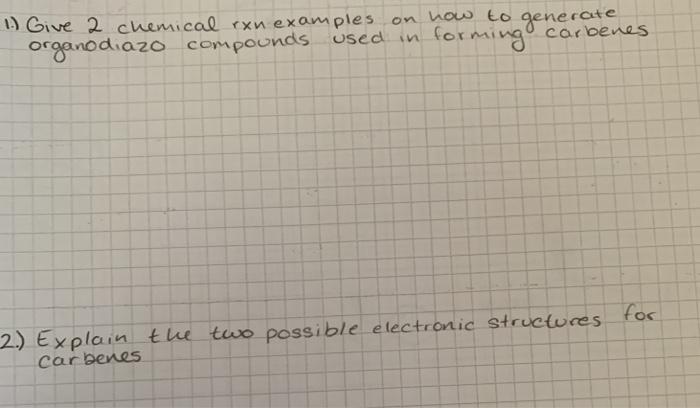 1.) Give 2 chemical rxn examples on how to generate
organodiazo compounds used in forming carbenes
2.) Explain the two possible electronic structures for
carbenes